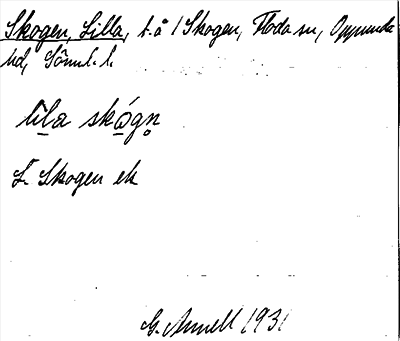 Skogen, Lilla, t. å 1 Skogen, Floda sn, Oppunda
hd, Söml. l.
lila skógn
L. Skogen ek
G. Annell 1931